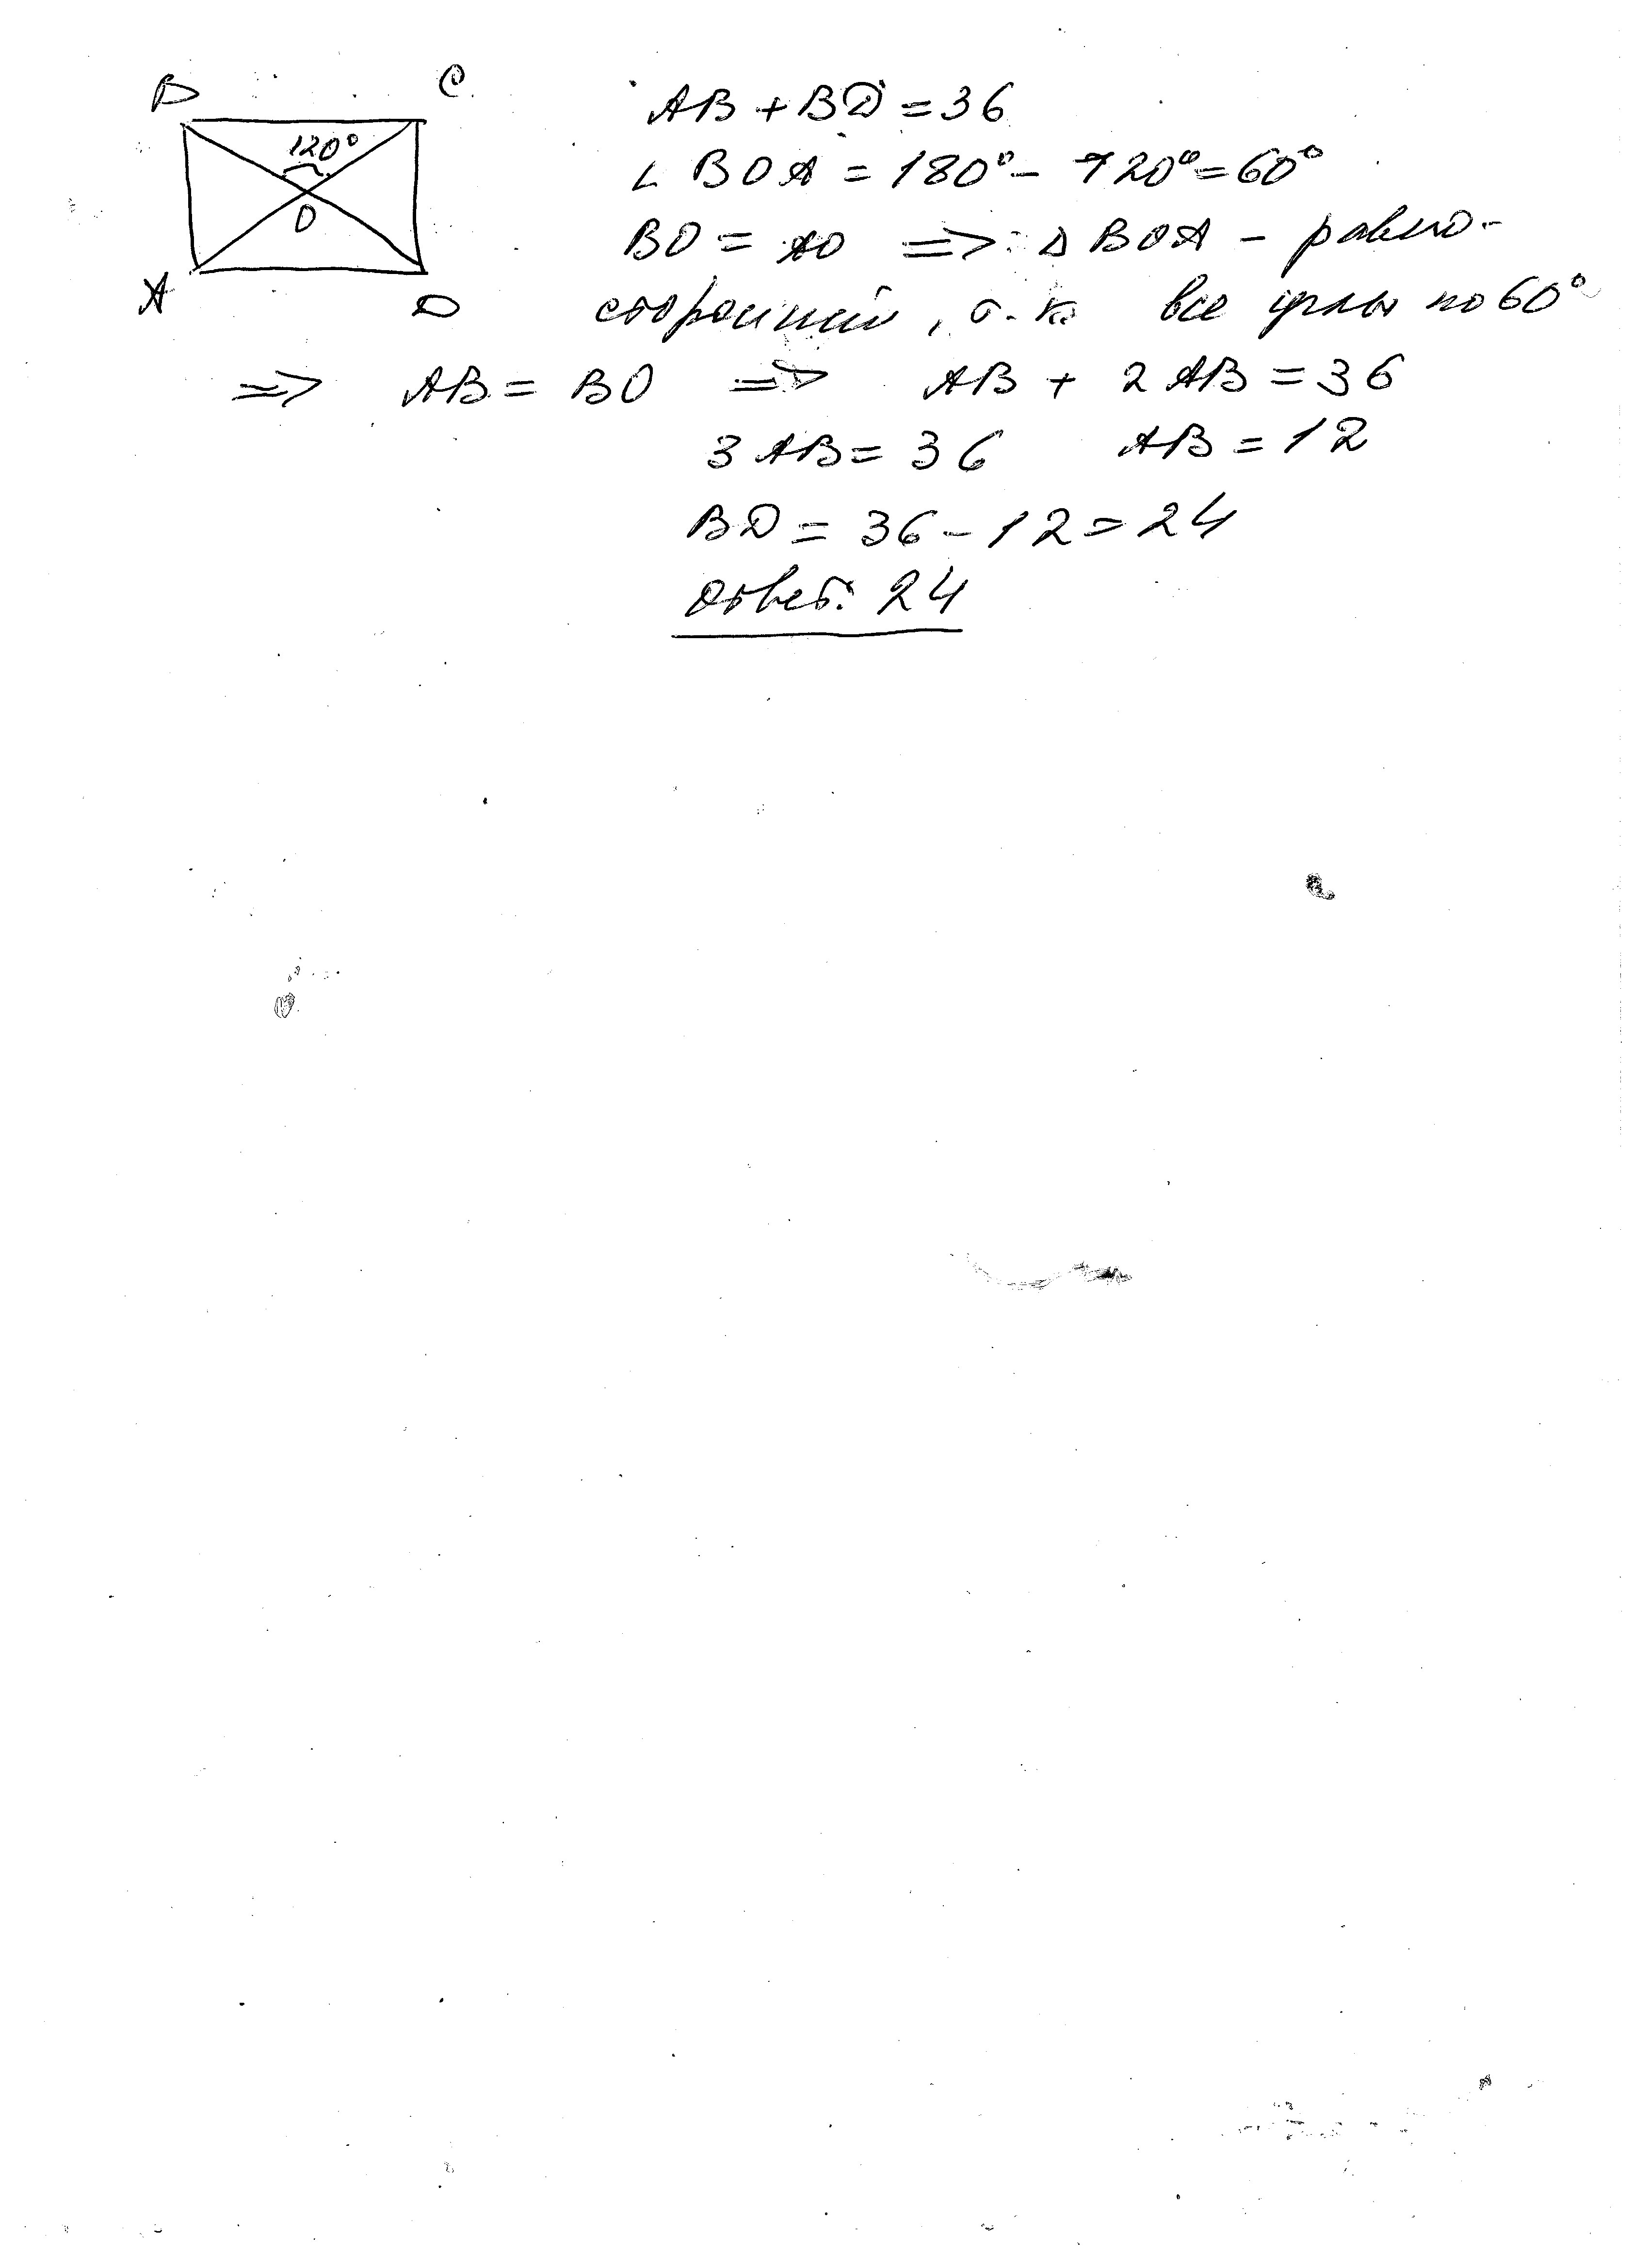 B C
120°
O
A D
AB + BD = 36
∠ BOA = 180° - 120° = 60°
BO = AO => Δ BOA - равно-
сторонний, т.к. все углы по 60°
=> AB = BO => AB + 2 AB = 36
3 AB = 36 AB = 12
BD = 36 - 12 = 24
Ответ: 24